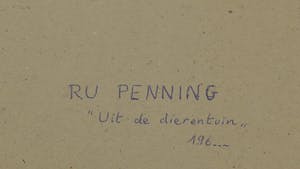 RU PENNING
"Uit de dierentuin„
196...